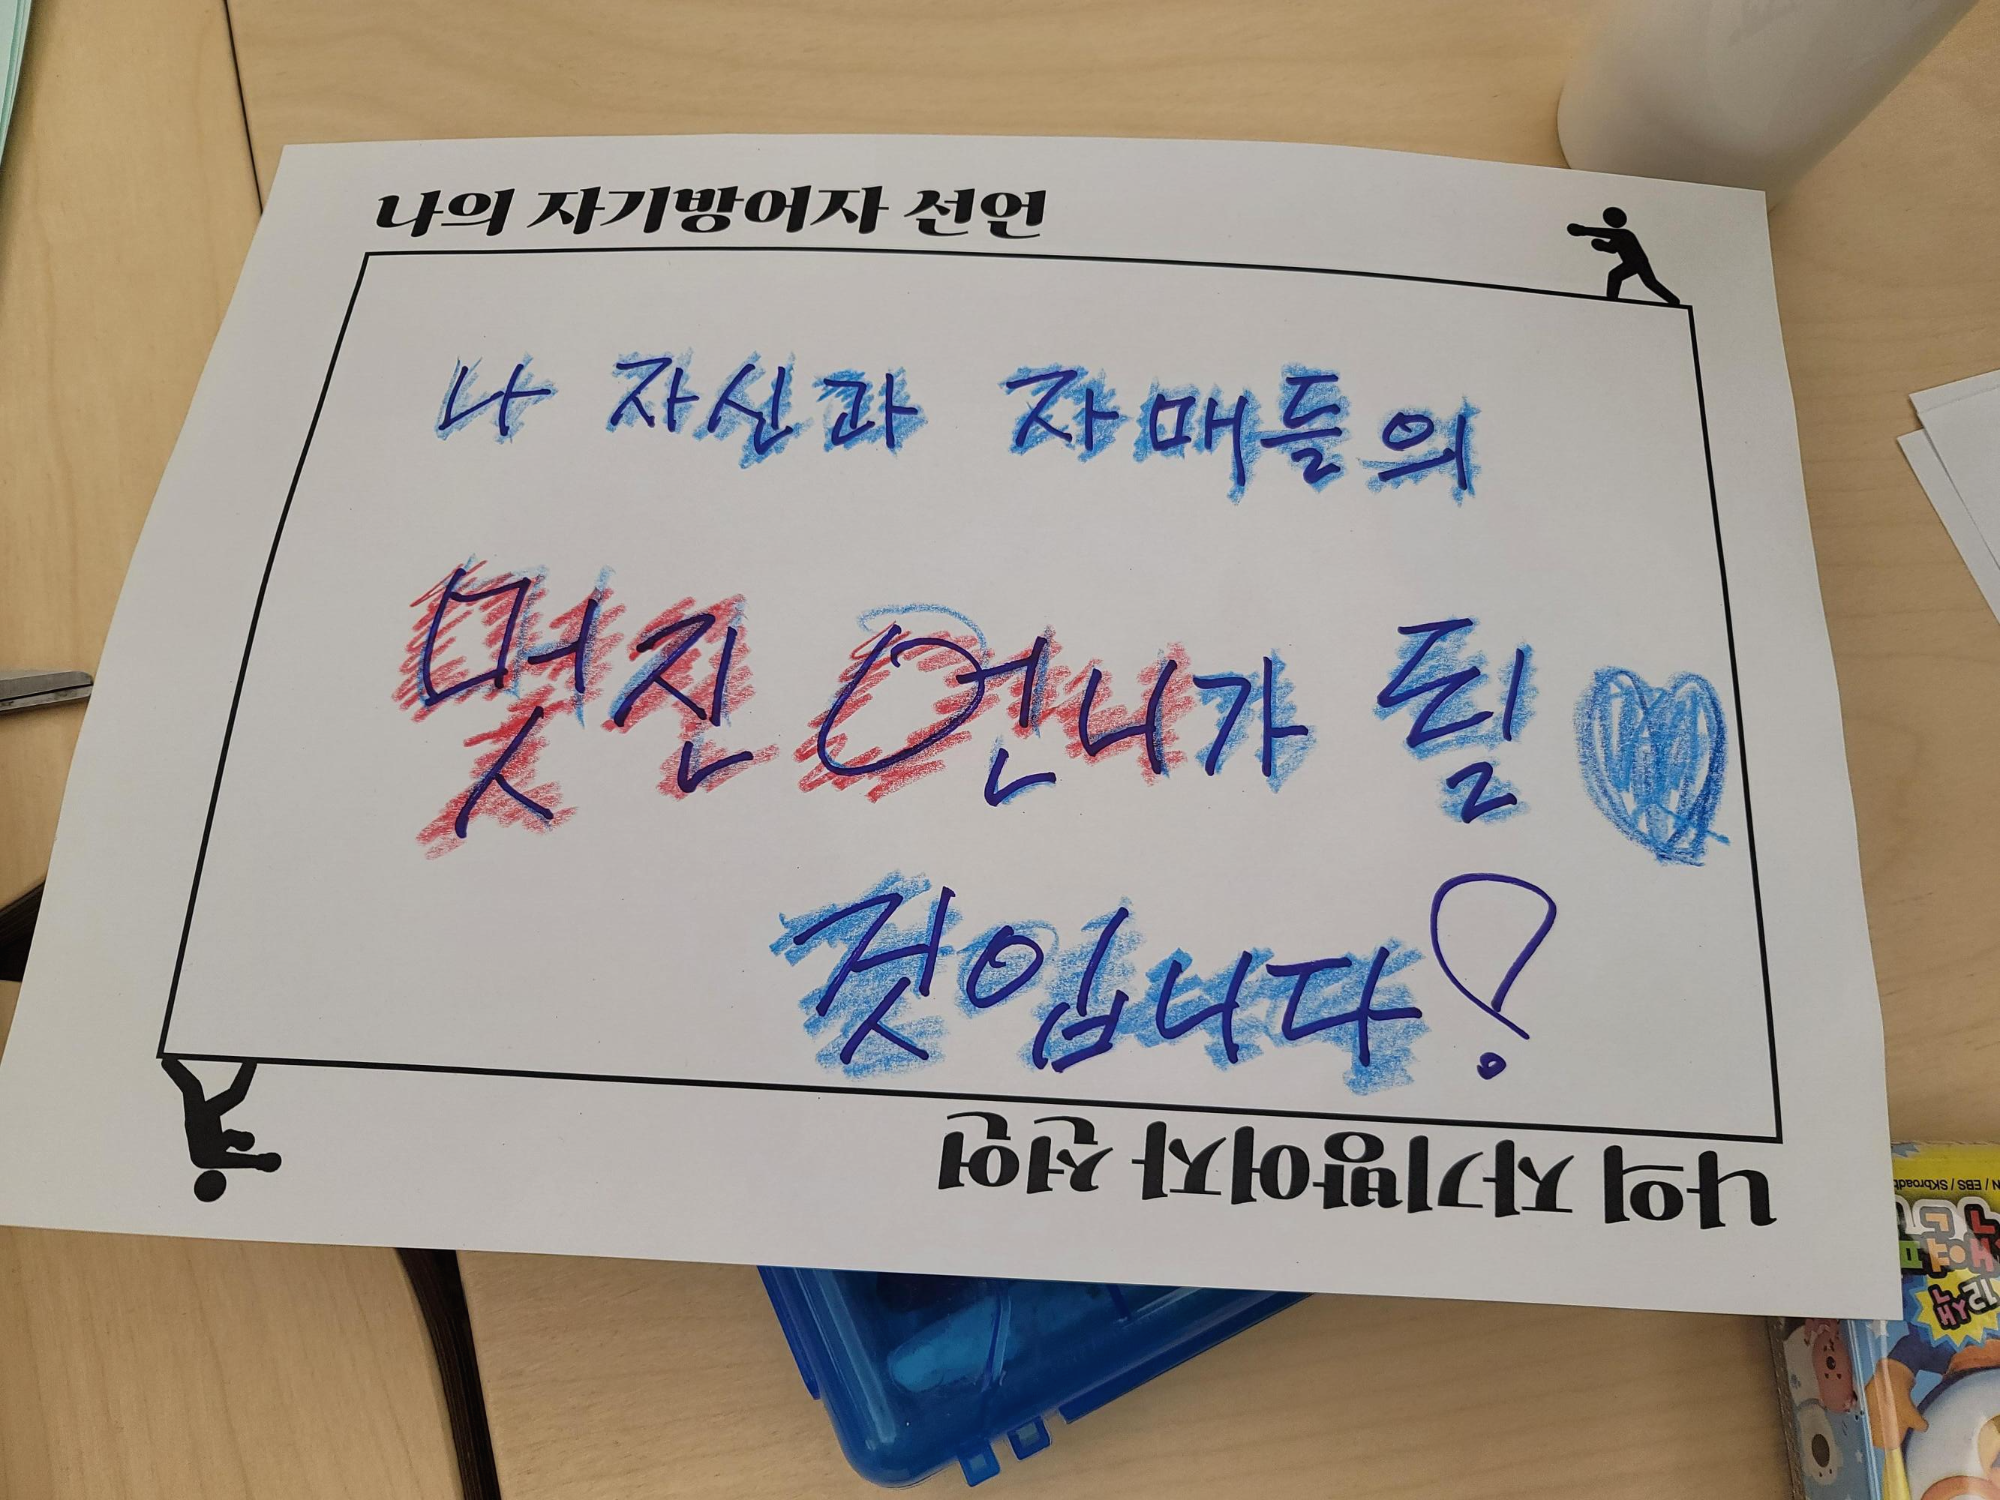 나의 자기방어자 선언
나 자신과 자매들의
멋진 언니가 될
것입니다!
나의 자기방어자 선언
EBS / SKbroadb
12색